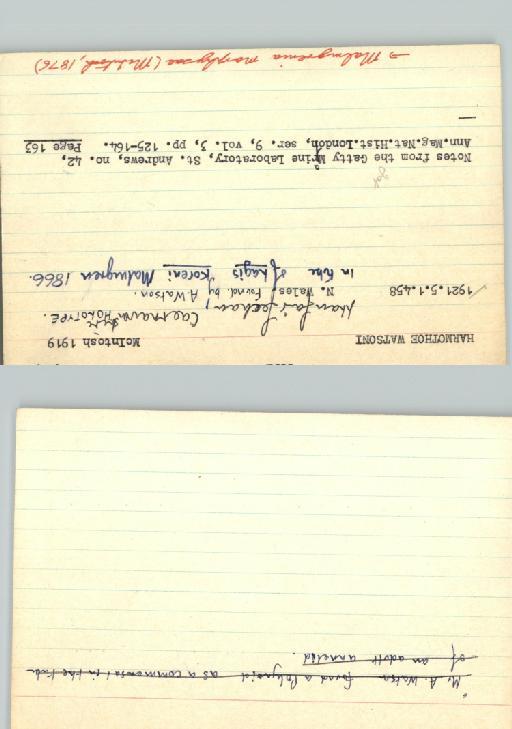 HARMOTHOE WATSONI McIntosh 1919
HOLOTYPE.
Llanfairfechan, Caernarvonshire
1921.5.1.458 N. Wales. Found by A Watson.
in tube of Lagis Koreni Malmgren 1866.
Notes from the Gatty Marine Laboratory, St. Andrews, no. 42,
Ann.Mag.Nat.Hist.London, ser. 9, vol. 3, pp. 125-164. Page 163
→ Malmgrenia marphysae (McIntosh, 1876)
"M. A. Watson found a Polynoid as a commensal in the tube
of an adult annelid.